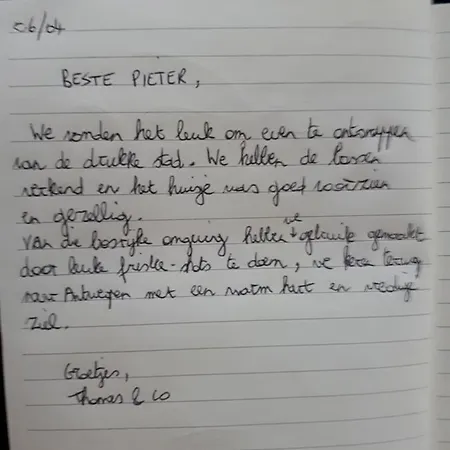 26/04
BESTE PIETER,
We vonden het leuk om even te ontsnappen
van de drukke stad. We hebben de bossen
verkend en het huisje was goed voorzien
en gezellig.
Van die bosrijke omgeving hebben we gebruik gemaakt
door leuke frisbee-shots te doen, we keren terug
naar Antwerpen met een warm hart en vredige
ziel.
Groetjes,
Thomas & co